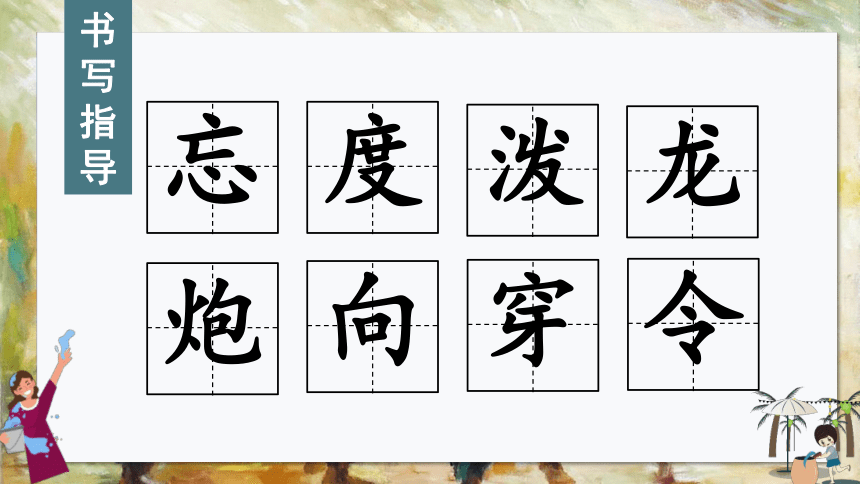 书写指导
忘度泼龙
炮向穿令